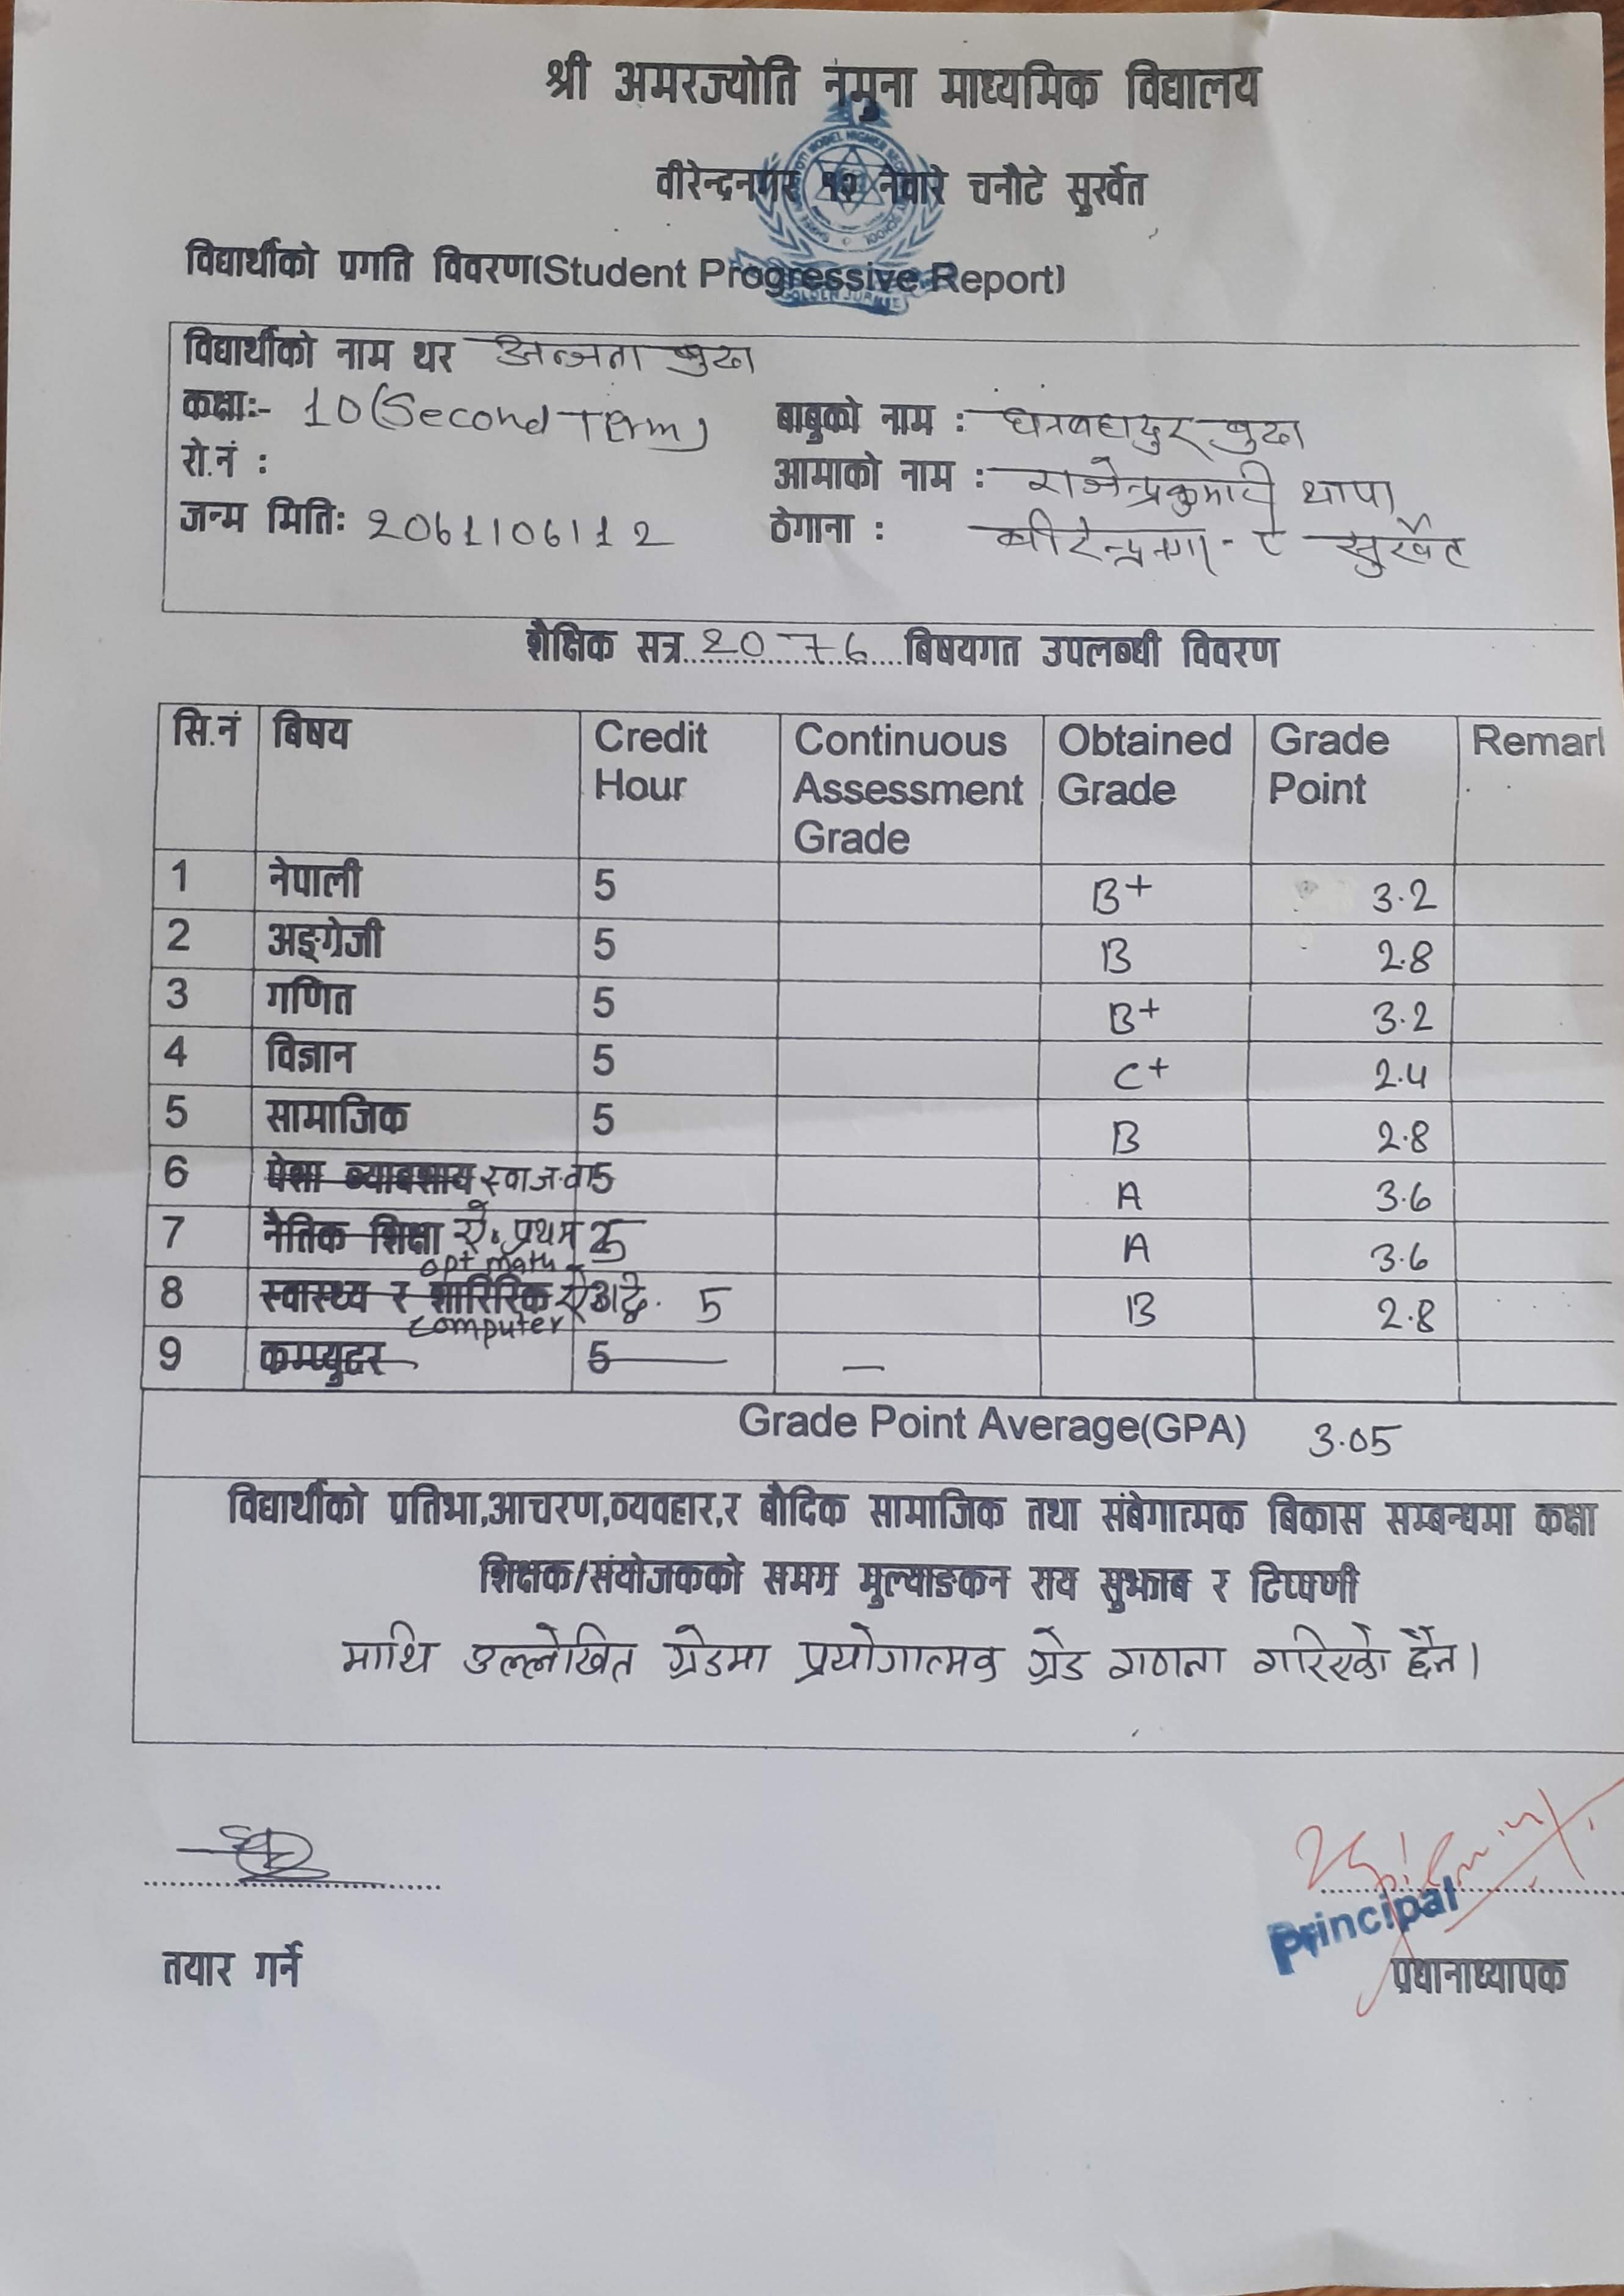 श्री अमरज्योति नमुना माध्यमिक विद्यालय
वीरेन्द्रनगर १२ नेवारे चनौटे सुर्खेत
विद्यार्थीको प्रगति विवरण(Student Progressive Report)
विद्यार्थीको नाम थर अन्जना बुढा
कक्षाः- 10 (Second Term)
बाबुको नाम : बुढा
रो.नं :
आमाको नाम : राजेन्द्रकुमारी थापा
जन्म मितिः 2061/06/12
ठेगाना : सुर्खेत
शैक्षिक सत्र 2076 बिषयगत उपलब्धी विवरण
सि.नं बिषय Credit Hour Continuous Assessment Grade Obtained Grade Grade Point Remar
1 नेपाली 5 B+ 3.2
2 अङ्ग्रेजी 5 B 2.8
3 गणित 5 B+ 3.2
4 विज्ञान 5 C+ 2.4
5 सामाजिक 5 B 2.8
6 पेशा व्यावशाय स्वा.ज.वा 5 A 3.6
7 नैतिक शिक्षा ऐ. प्रथम 5 A 3.6
opt math
8 स्वास्थ्य र शारिरिक 5 B 2.8
computer
9 कम्प्युटर 5 —
Grade Point Average(GPA) 3.05
विद्यार्थीको प्रतिभा,आचरण,व्यवहार,र बौदिक सामाजिक तथा संबेगात्मक बिकास सम्बन्धमा कक्षा
शिक्षक/संयोजकको समग्र मुल्याङकन राय सुझाब र टिप्पणी
माथि उल्लेखित ग्रेडमा प्रयोगात्मक ग्रेड गणना गरिएको छैन।
Principal
तयार गर्ने
प्रधानाध्यापक